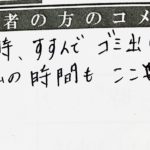 者の方のコメ
時、すすんで ゴミ出し
ムの時間も ここ